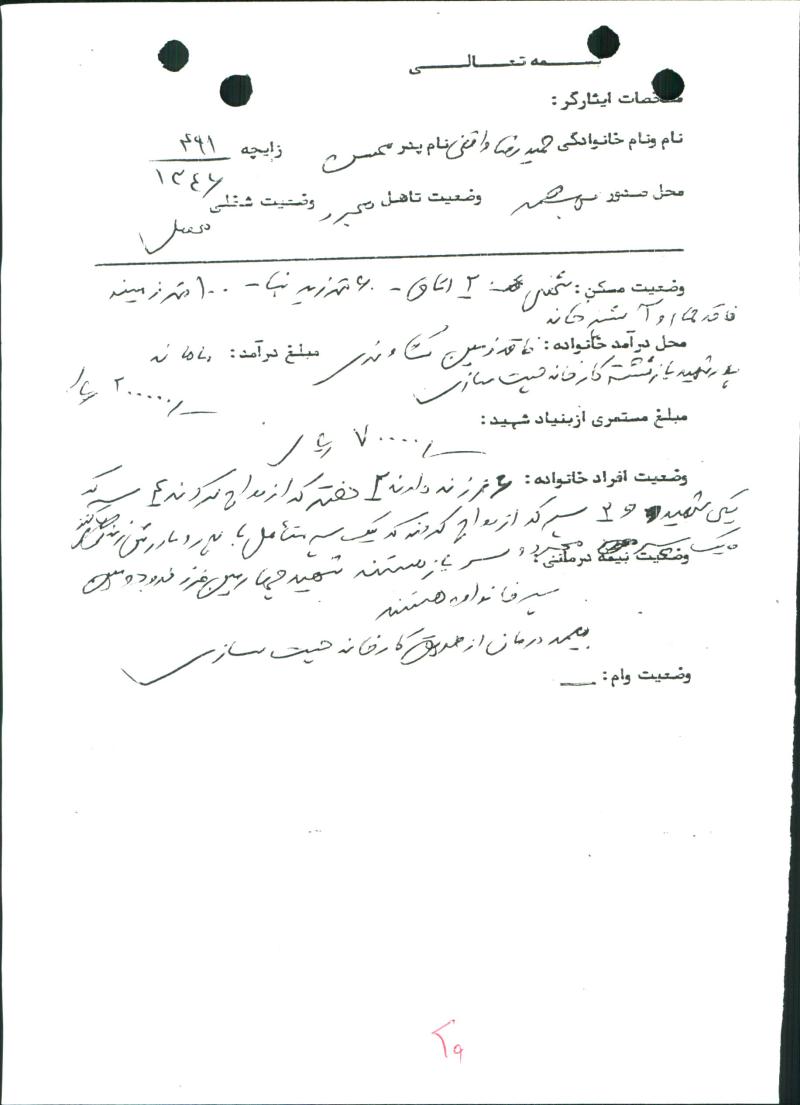 بسمه تعالی
مشخصات ایثارگر:
نام ونام خانوادگی حمیدرضا واقفی نام پدر محسن زایچه ۴۹۱
۱۳۴۶
محل صدور وضعیت تاهل مجرد وضعیت شغلی
محصل
وضعیت مسکن: شخصی ۲ اتاق - ۶۰ متر زیر بنا - ۱۰۰ متر زمینه
فاقد حمام و آشپزخانه
محل درآمد خانواده: فاقد زمین کشاورزی مبلغ درآمد: ماهانه
پدر شهید بازنشسته کارخانه چیت سازی ۲۰۰۰۰۰/- ریال
مبلغ مستمری ازبنیاد شهید:
۷۰۰۰۰/- ریال
وضعیت افراد خانواده: ۶ فرزند دارند ۲ دختر که ازدواج کردند ۴ پسر که
یکی شهید و ۲ پسر که ازدواج کردند که یک پسر متاهل با پدر و مادرش زندگی
و یک پسر مجرد
وضعیت بیمه درمانی:
شهید چهارمین فرزند و دومین
پسر خانواده هستند
بیمه درمان از طریق کارخانه چیت سازی
وضعیت وام: —
۲۹